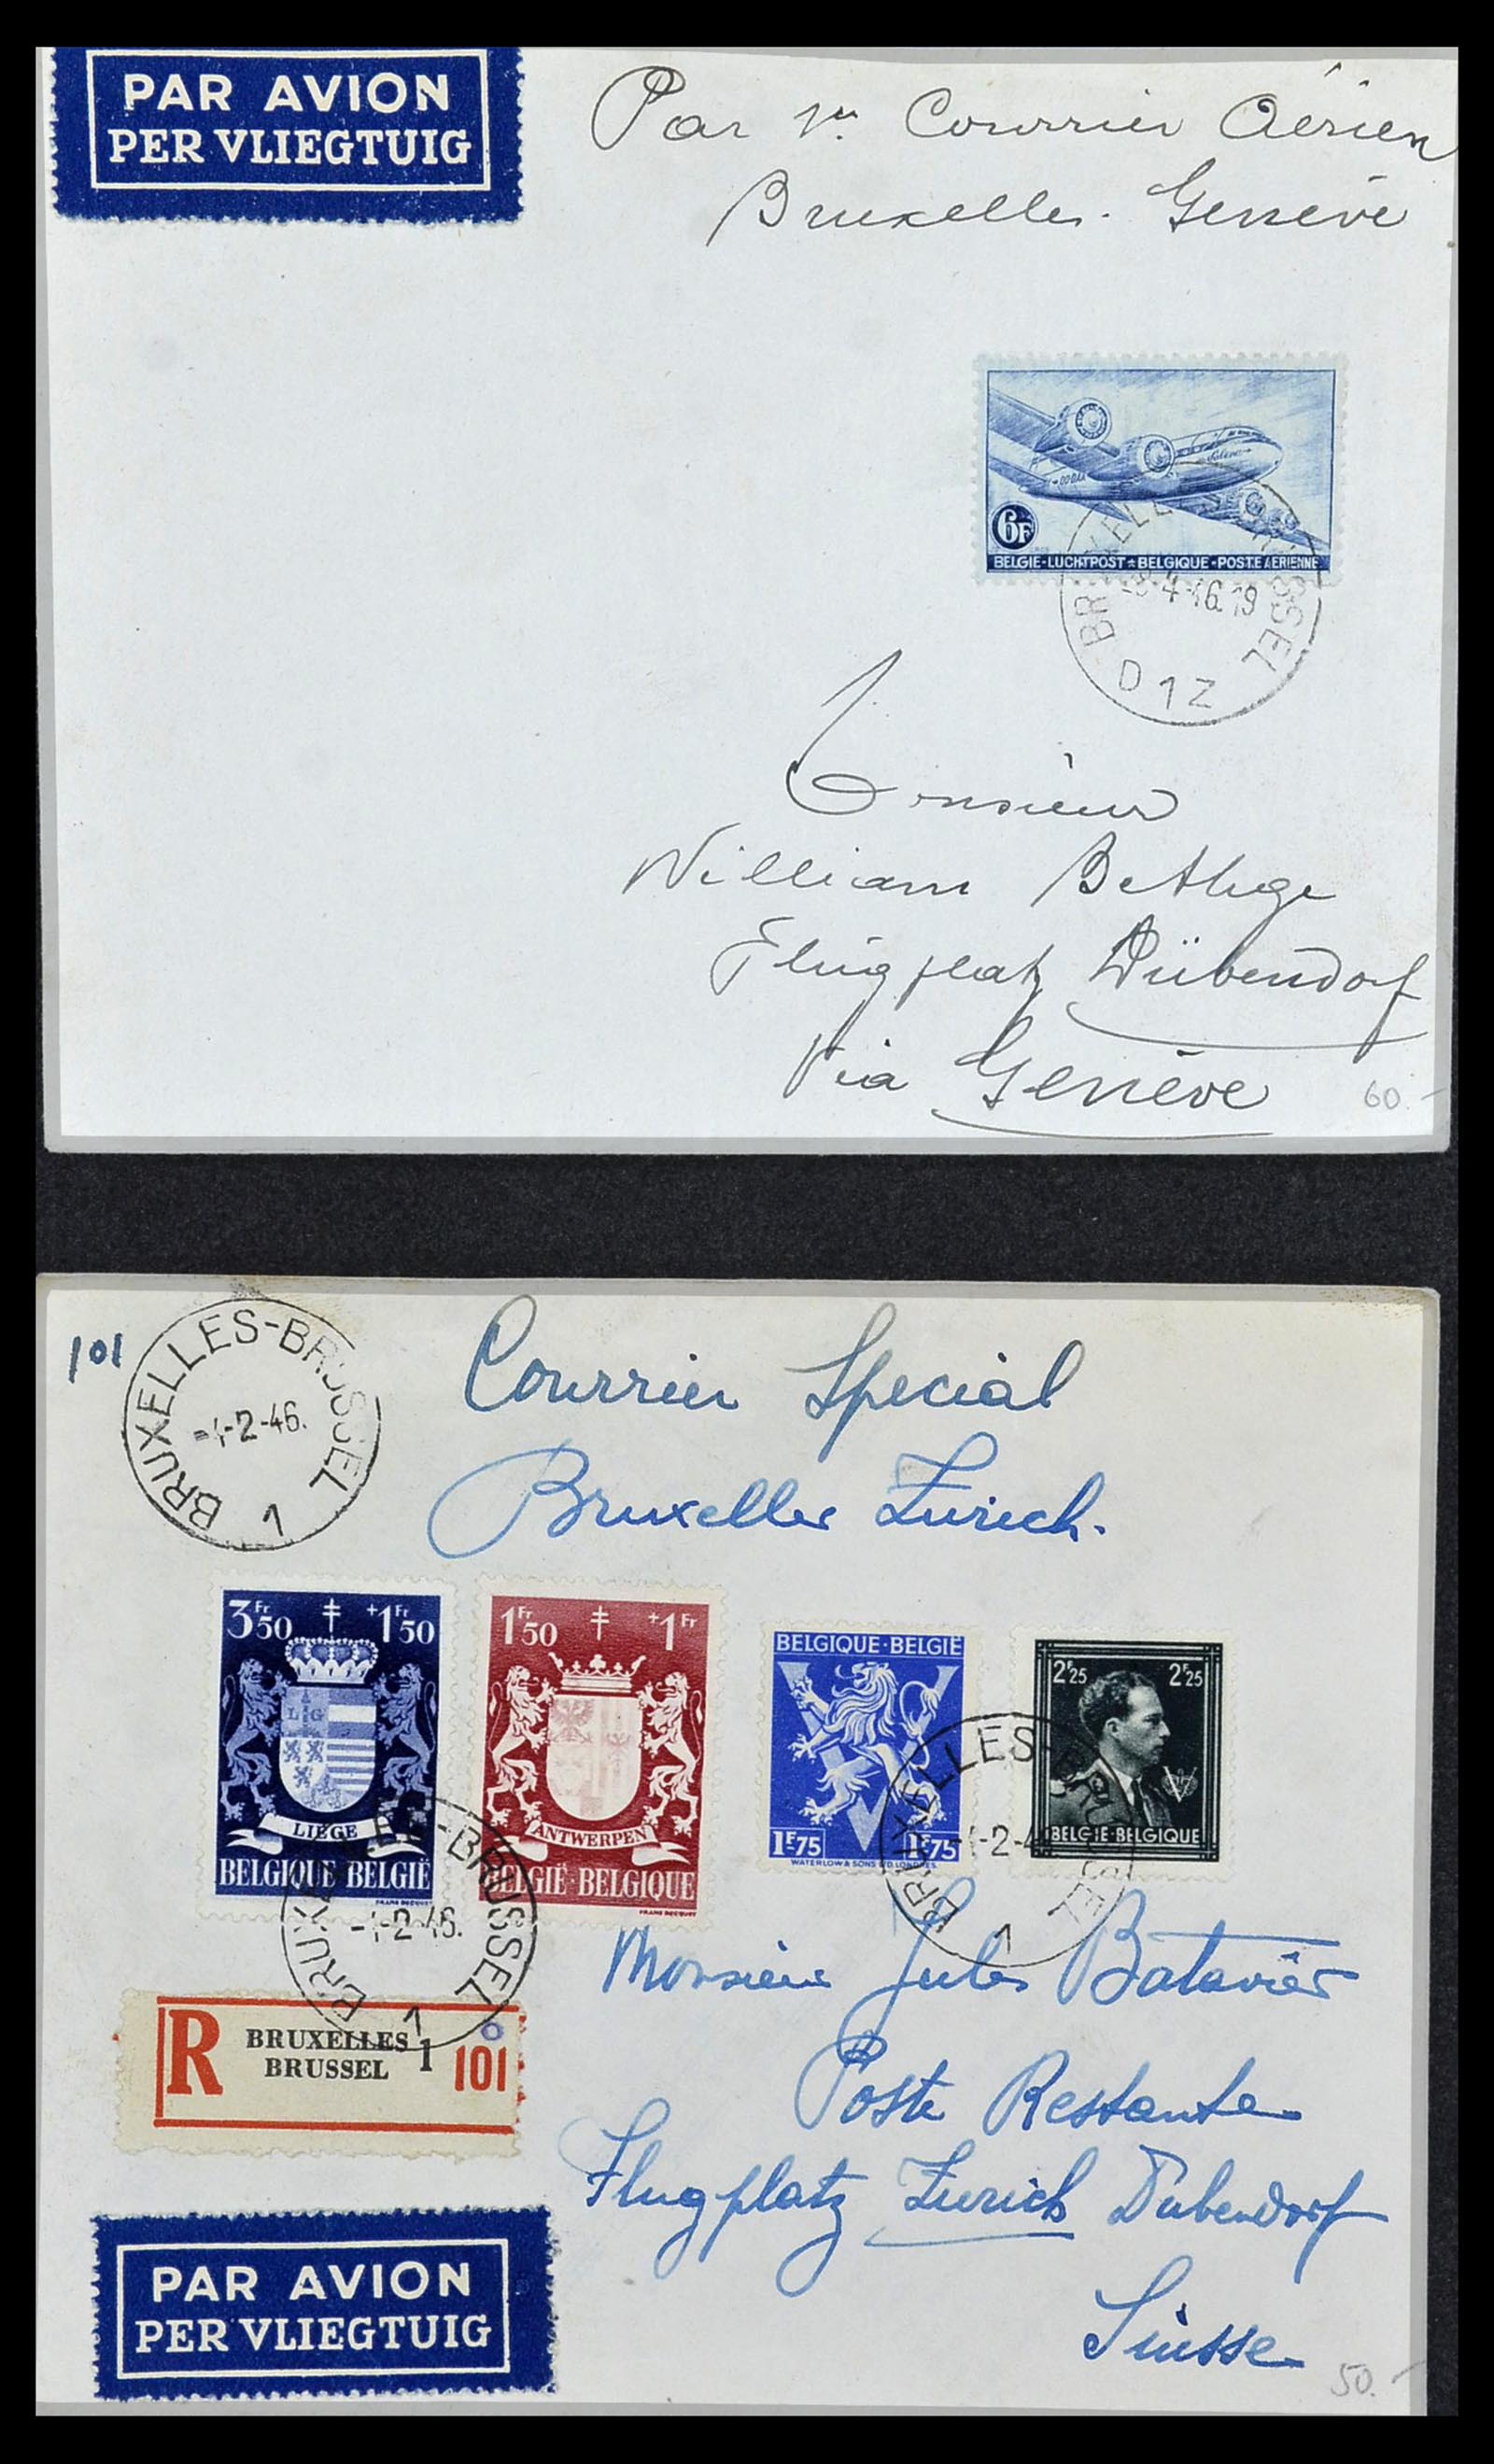 PAR AVION
PER VLIEGTUIG
Par 1er Courrier Aérien
Bruxelles - Genève
6F
BELGIE-LUCHTPOST★BELGIQUE-POSTE AERIENNE
BRUXELLES-BRUSSEL
-4-46.19
D1Z
Monsieur
William Bethge
Flugplatz Dübendorf
Via Genève
60.-
101
BRUXELLES-BRUSSEL
-2-46.
1
Courrier Special
Bruxelles Zurich.
3Fr50 +1Fr50
LIÈGE
BELGIQUE BELGIË
1Fr50 +1Fr
ANTWERPEN
BELGIË-BELGIQUE
BELGIQUE-BELGIË
1F75 1F75
WATERLOW & SONS LTD. LONDRES.
2F25 2F25
BELGIE-BELGIQUE
BRUXELLES-BRUSSEL
-2-46.
1
BRUXELLES-BRUSSEL
1
Monsieur Jules Batavier
Poste Restante
Flugplatz Zurich Dubendorf
Suisse
R BRUXELLES 1
BRUSSEL
101
PAR AVION
PER VLIEGTUIG
50.-